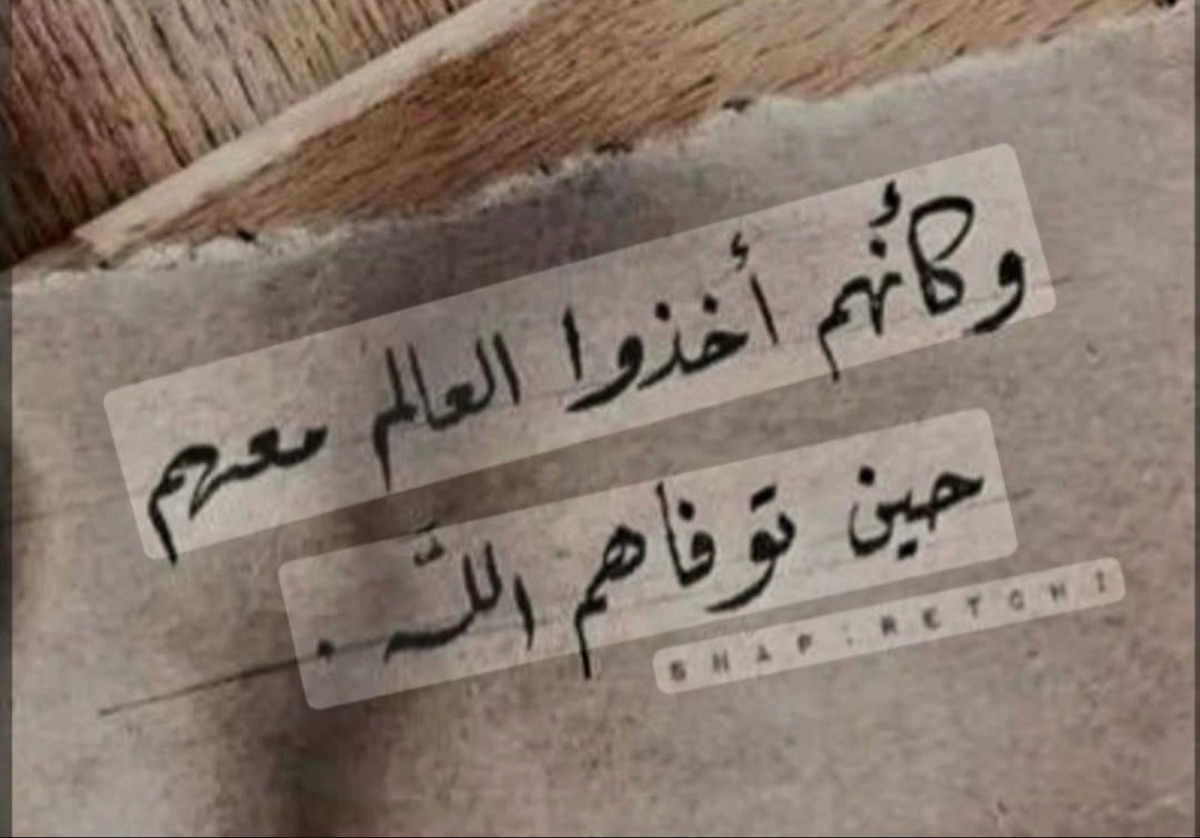 وكأنهم أخذوا العالم معهم
حين توفاهم اللَّه .
SNAP:RETCHI